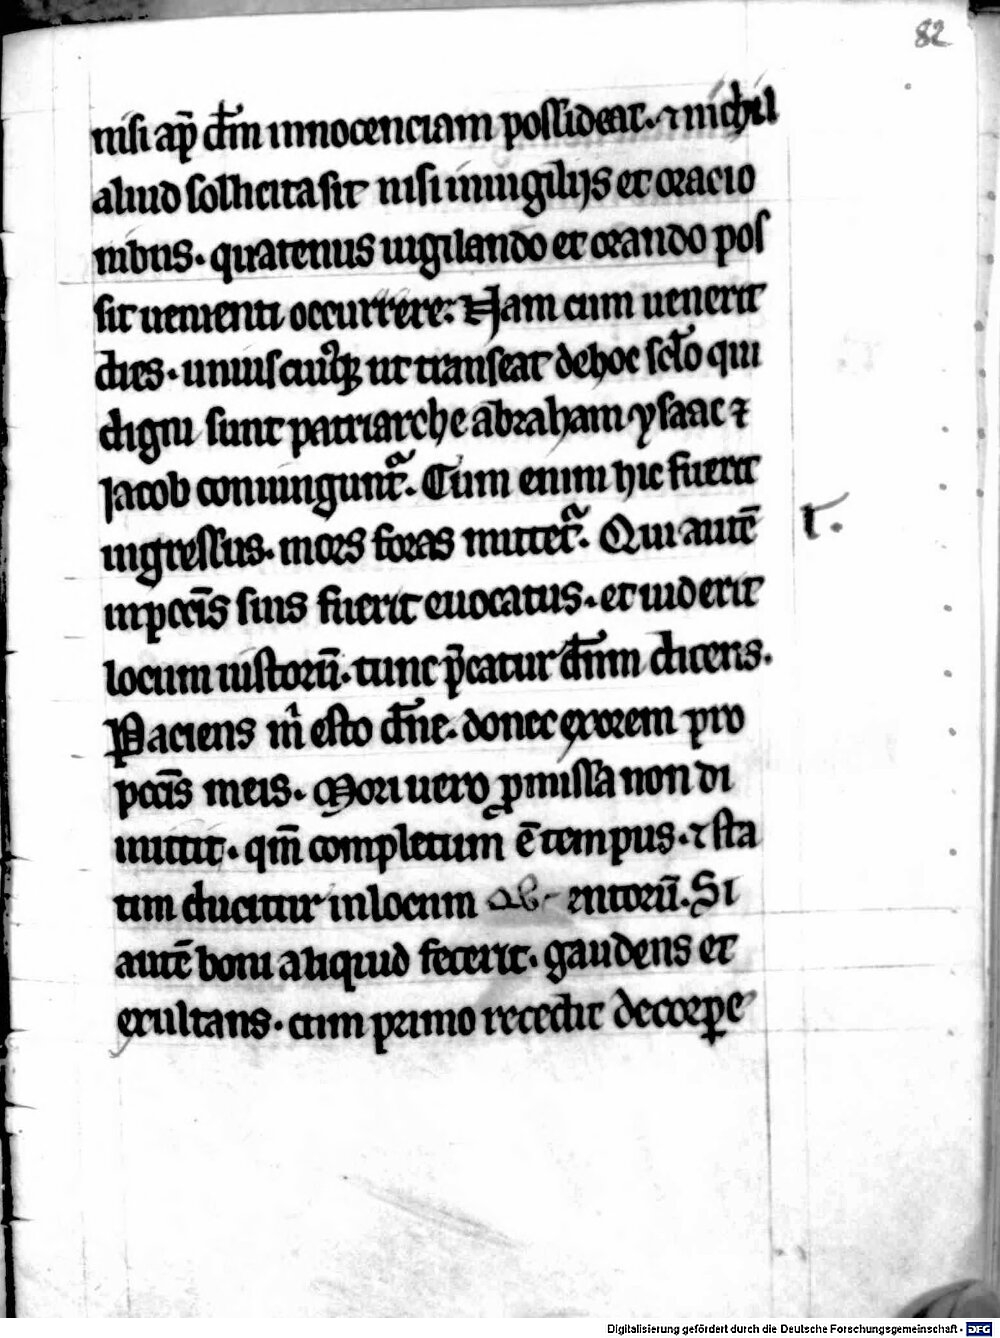 82
nisi ap̄ dm̄ innocenciam possideat. ⁊ nichil
aliud sollicita sit nisi in uigilijs et oracio
nibus. quatenus uigilando et orando pos
sit uenienti occurrere. Nam cum uenerit
dies. uniuscuiꝰqꝫ ut transeat de hoc sclo qui
digni sunt patriarche abraham ysaac ⁊
jacob coniungunt᷑. Cum enim hic fuerit
ingressus. mors foras mittet᷑. Qui autē
in pccīs suis fuerit euocatus. et uiderit
locum iustorū. tunc p̄catur dn̄m dicens.
Paciens m̄ esto dn̄e. donec exorem pro
pccīs meis. Mori uero ꝓmissa non di
mittit. qm̄ completum ē tempus. ⁊ sta
tim ducitur in locum Si
autē boni aliquid fecerit. gaudens et
exultans. cum primo recedit de corꝑe
r.
Digitalisierung gefördert durch die Deutsche Forschungsgemeinschaft - DFG